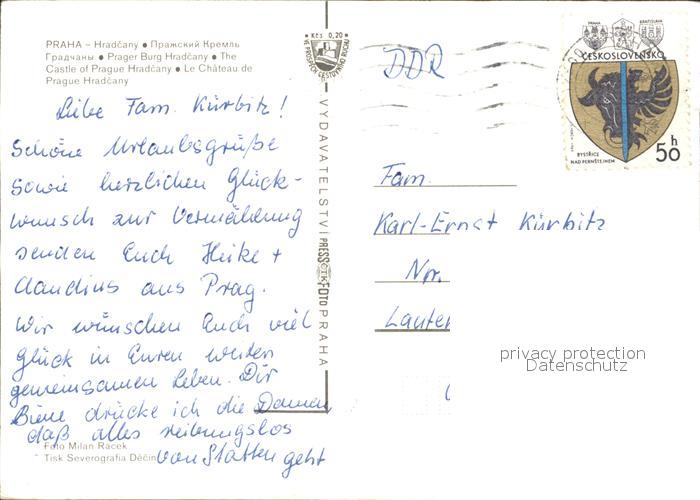 PRAHA – Hradčany ● Пражский Кремль
Градчаны ● Prager Burg Hradčany ● The
Castle of Prague Hradčany ● Le Château de
Prague Hradčany
Liebe Fam. Kürbitz!
Schöne Urlaubsgrüße
sowie herzlichen Glück-
wunsch zur Vermählung
senden Euch Heike +
Claudius aus Prag.
Wir wünschen Euch viel
Glück in Euren weiteren
gemeinsamen Leben. Dir
Biene drücke ich die Daumen
daß alles reibungslos
von Statten geht
Foto Milan Racek
Tisk Severografia Děčín
Kčs 0,20
VE PROSPĚCH CESTOVNÍHO RUCHU
VYDAVATELSTVÍ PRESSFOTO PRAHA
ČTK
DDR
PRAHA
BRATISLAVA
ČESKOSLOVENSKO
BYSTŘICE
NAD PERNŠTEJNEM
50 h
Fam.
Karl-Ernst Kürbitz
privacy protection
Datenschutz